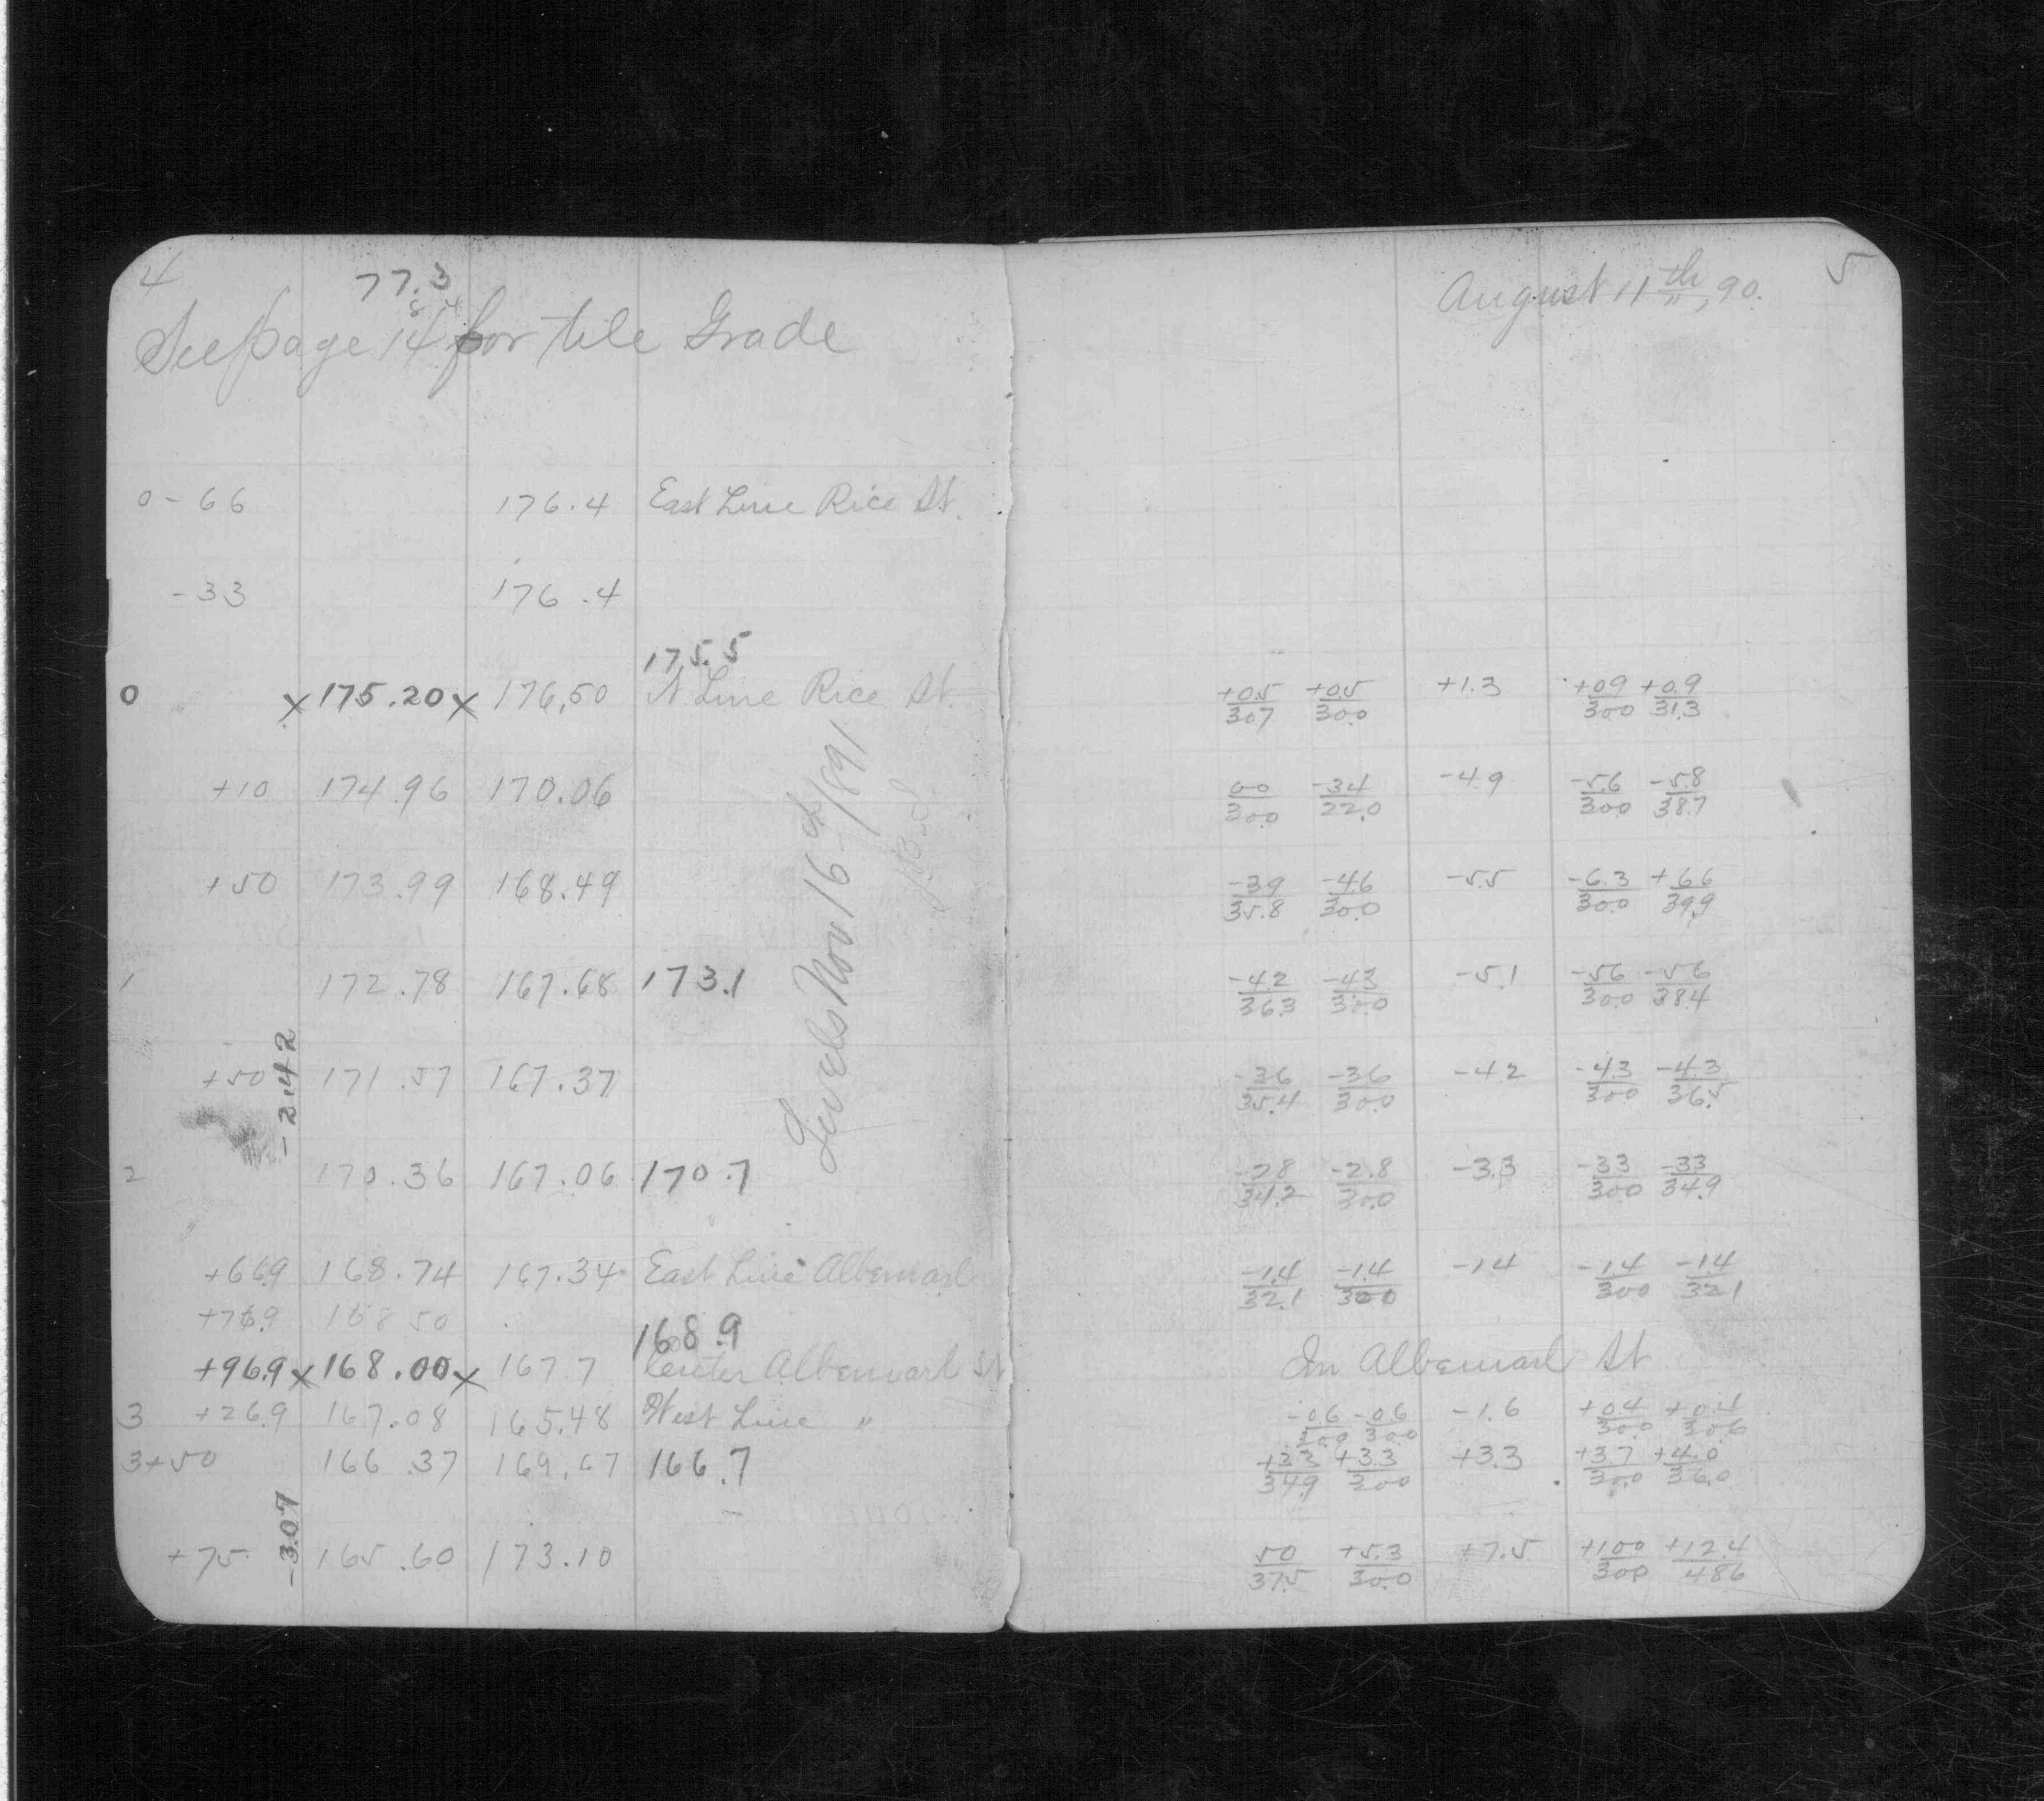 4
77.3
See page 14 for tile Grade
0-66 176.4 East Line Rice St.
-33 176.4
175.5
0 x 175.20 x 176.50 Line Rice St.
+10 174.96 170.06
+50 173.99 168.49
1 172.78 167.68 173.1
+50 171.57 167.37
-2.42
2 170.36 167.06 170.7
+66.9 168.74 167.34 East Line Albemarl
+76.9 168.50
168.9
+96.9 x 168.00 x 167.7 Center Albemarl St
3 +26.9 167.08 165.48 West Line "
3+50 166.37 169.67 166.7
-3.07
+75 165.60 173.10
Levels Nov 16th 1891
5
August 11th, 90.
+0.5/30.7 +0.5/30.0 +1.3 +0.9/30.0 +0.9/31.3
00/30.0 -3.4/22.0 -4.9 -5.6/30.0 -5.8/38.7
-3.9/35.8 -4.6/30.0 -5.5 -6.3/30.0 +6.6/39.9
-4.2/36.3 -4.3/30.0 -5.1 -5.6/30.0 -5.6/38.4
-3.6/35.4 -3.6/30.0 -4.2 -4.3/30.0 -4.3/36.5
-2.8/34.2 -2.8/30.0 -3.3 -3.3/30.0 -3.3/34.9
-1.4/32.1 -1.4/30.0 -1.4 -1.4/30.0 -1.4/32.1
In Albemarl St
-0.6/30.9 -0.6/30.0 -1.6 +0.4/30.0 +0.4/30.6
+3.3/34.9 +3.3/30.0 +3.3 +3.7/30.0 +4.0/36.0
50/37.5 +5.3/30.0 +7.5 +10.0/30.0 +12.4/48.6